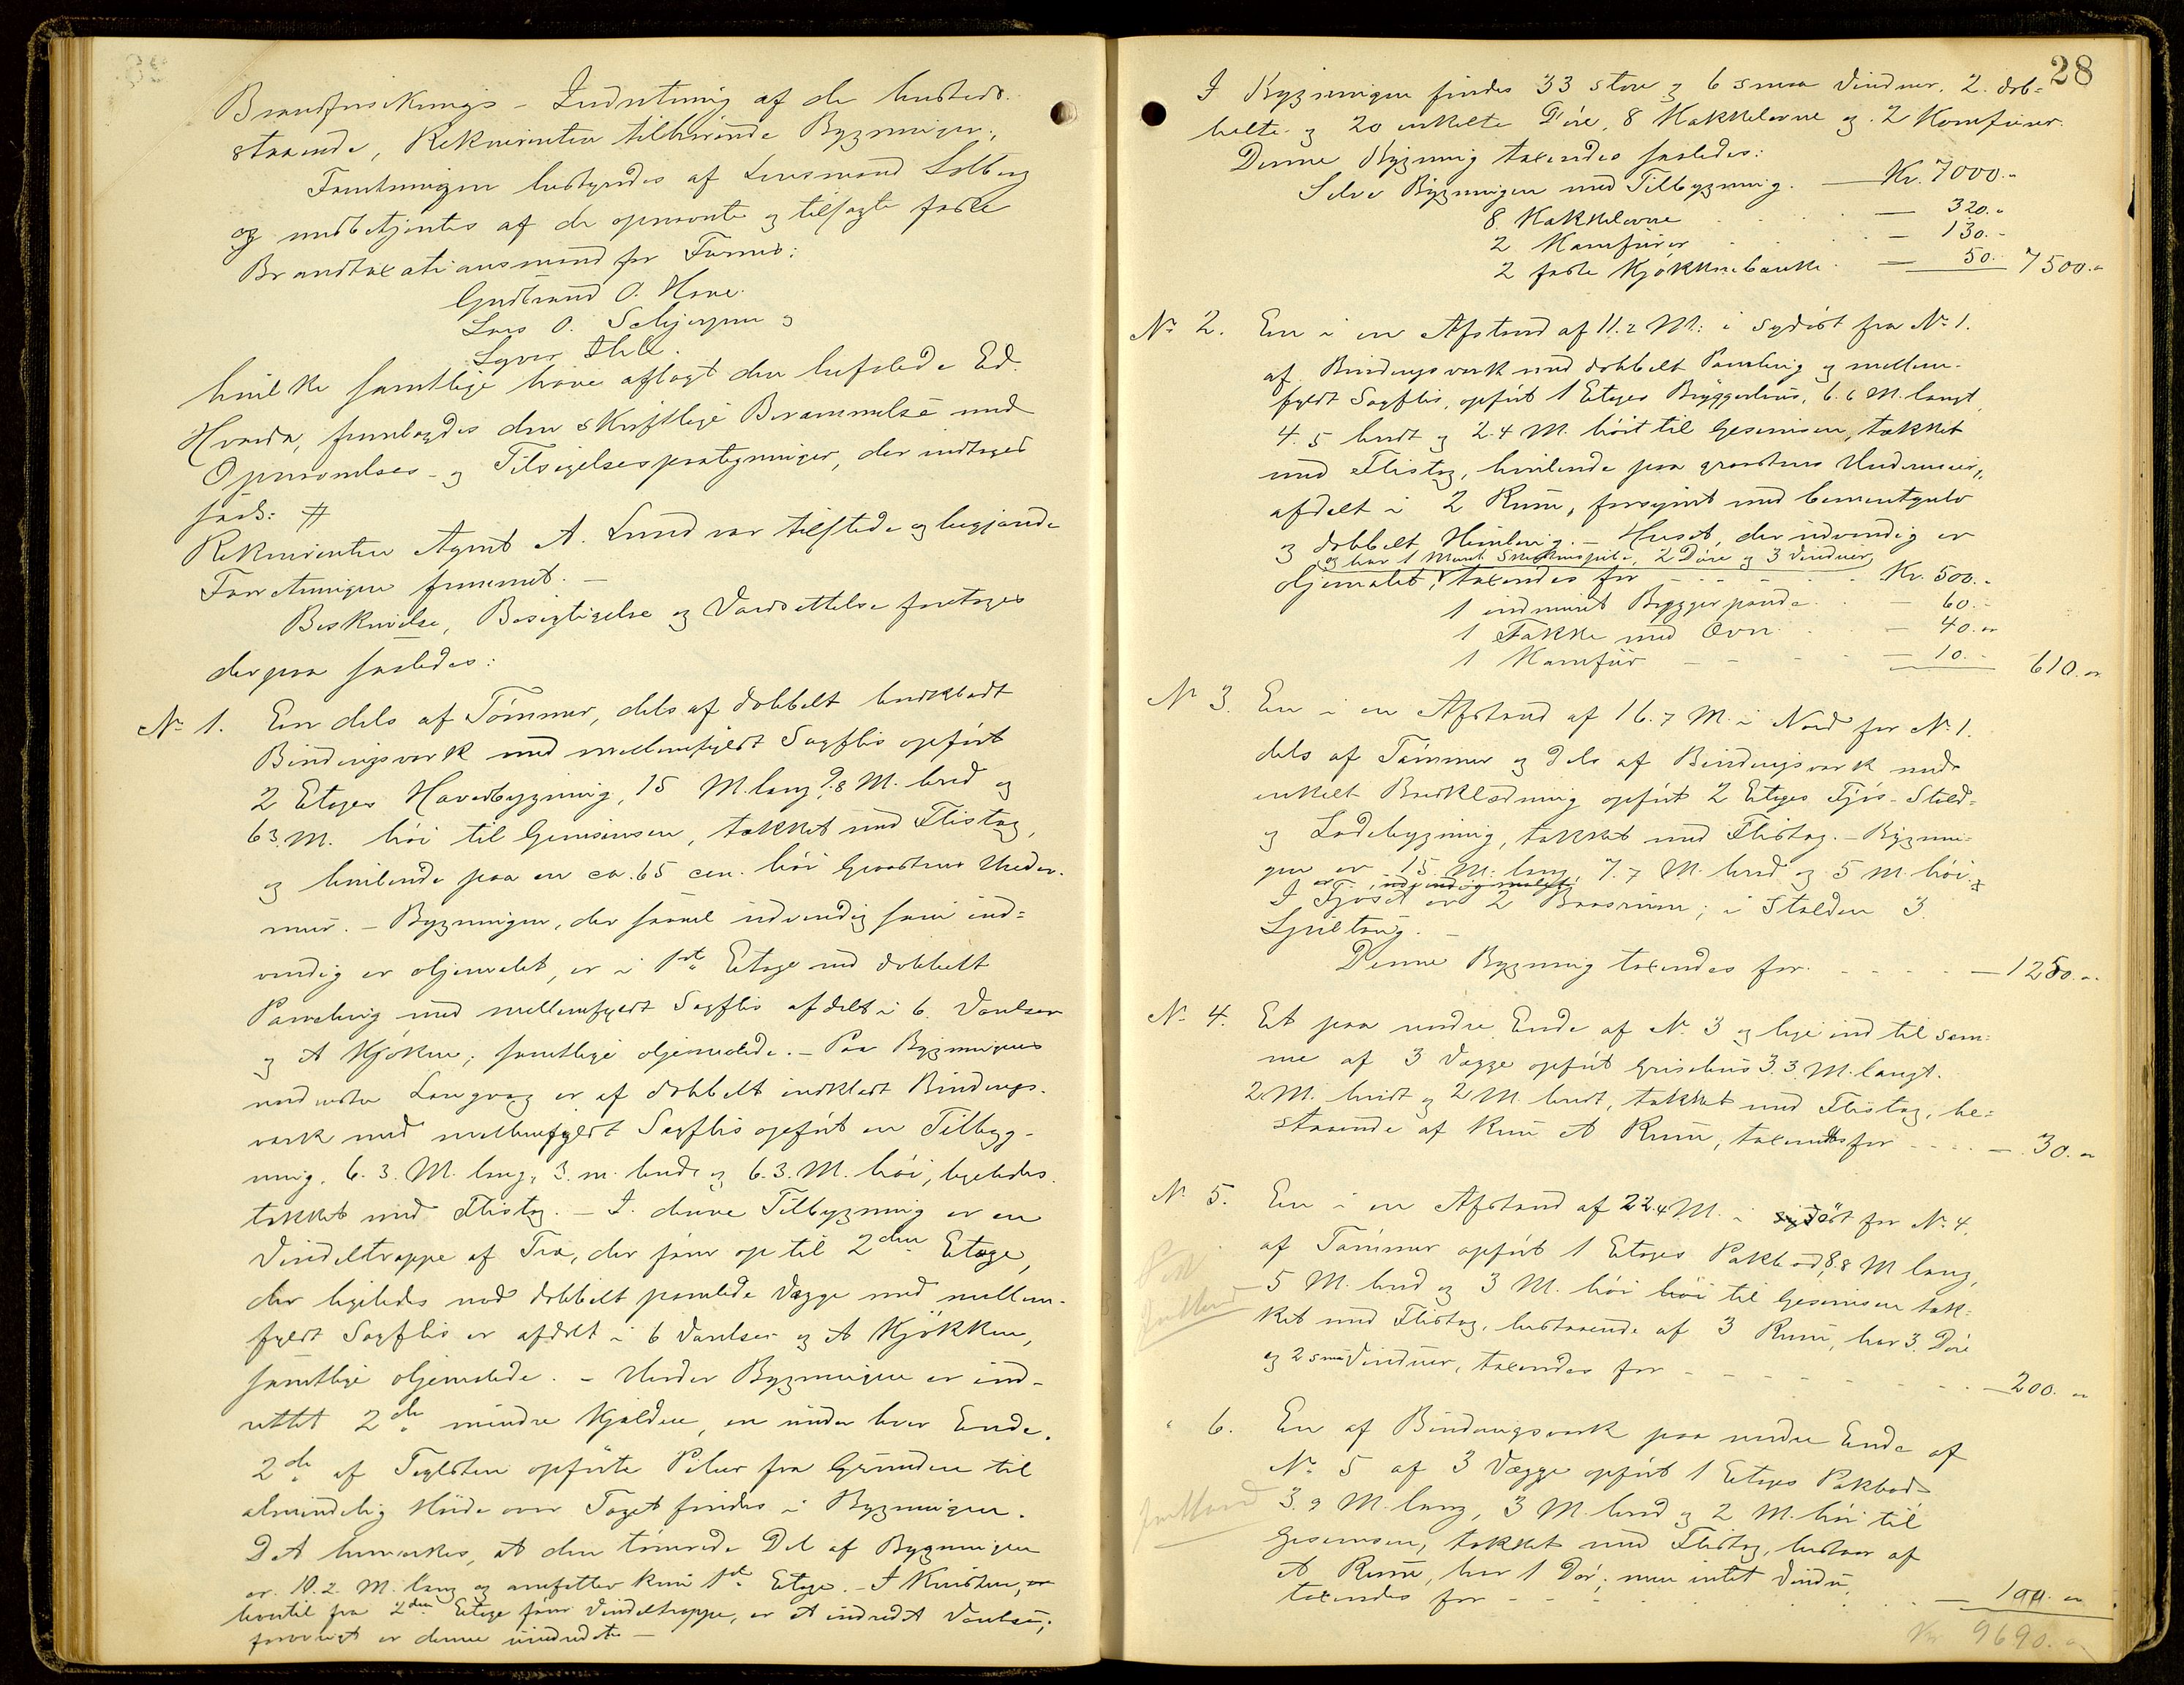 Brandforsikrings-Indretning af de hersteds
staaende, Rekvirenten tilhørende Bygninger.
Forretningen bestyredes af Lensmand Solberg
og medbetjentes af de opnævnte og tilsagte faste
Brandtaxationsmænd for Furnes:
Gudbrand O. Hove.
Lars O. Schjerpen og
Syver Ihle.
hvilke samtlige have aflagt den befalede Ed.
Hvorda, fremlagdes den skriftlige Berammelse med
Opnævnelses- og Tilsigelsespaategninger, der indtages
saal: #
Rekvirenten Agent A. Lund var tilstede og begjærede
Forretningen fremmet. -
Beskrivelse, Besigtigelse og Værdsettelse foretoges
derpaa saaledes:
No 1. En dels af Tømmer, dels af dobbelt bordklædt
Bindingsværk med mellemfyldt Sagflis opført
2 Etages Hovedbygning, 15 M. lang, 9.8 M. bred og
6.3. M. høi til Gesimsen, tækket med Flistag,
og hvilende paa en ca. 65 cm. høi Graastens Under-
mur. - Bygningen, der saavel udvendig som ind=
vendig er oljemalet, er i 1ste Etage med dobbelt
Paneling med mellemfyldt Sagflis afdelt i 6. Værelser
og et Kjøken; samtlige oljemalede. - Paa Bygningens
nedre Langvæg er af dobbelt indklædt Bindings-
værk med mellemfyldt Sagflis opført en Tilbyg-
ning, 6.3. M. lang, 3. m. bred og 6.3. M. høi, ligeledes
tækket med Flistag. - I denne Tilbygning er en
Vindeltrappe af Træ, der fører op til 2den Etage,
der ligeledes med dobbelt panelede Vægge med mellem-
fyldt Sagflis er afdelt i 6 Værelser og et Kjøkken,
samtlige oljemalede. - Under Bygningen er ind-
rettet 2de mindre Kjeldere, en under hver Ende.
2de af Teglsten opførte Piber fra Grunden til
almindelig Høide over Taget findes i Bygningen.
Det bemærkes, at den tømrede Del af Bygningen
er 10.2. M. lang og omfatter kun 1ste Etage. - I Kvisten, er
hvortil fra 2den Etage fører Vindeltrappe, er et indredet Værelse;
forøvrigt er denne uindredet. -
28
I Bygningen findes 33 store og 6 smaa Vinduer, 2. dob=
belte og 20 enkelte Døre, 8 Kakkelovne og 2 Komfurer.
Denne Bygning taxeredes saaledes:
Selve Bygningen med Tilbygning. - Kr. 7000.-
8 Kakkelovne - 320.-
2 Komfurer - 130.-
2 faste Kjøkkenbænke - 50.- 7500.-
No 2. En i en Afstand af 11.2 M. i Sydøst fra No 1.
af Bindingsværk med dobbelt Paneling og mellem-
fyldt Sagflis, opført 1 Etages Bryggerhus, 6.6 M. langt
4.5 bredt og 2.4 M. høit til Gesimsen, tækket
med Flistag, hvilende paa graastens Undermur,
afdelt i 2 Rum, forsynet med Cementgulv
og dobbelt Himling. - Huset, der udvendig er
og har 1 Murst. Skorstenspibe, 2 Døre og 3 Vinduer
oljemalet, taxeredes for - Kr. 500.-
1 indmuret Bryggerpande - 60.-
1 Takke med Ovn - 40.-
1 Komfur - 10.- 610.-
No 3. En i en Afstand af 16.7 M. i Nord for No 1.
dels af Tømmer og dels af Bindingsværk med
enkelt Bordklædning opført 2 Etages Fjøs- Stald-
og Ladebygning, tækket med Flistag. - Bygnin=
gen er 15 M. lang, 7.7 M. bred og 5 M. høi.
I Fjøset er 2 Baasrum; i Stalden 3
Spiltaug. -
Denne Bygning taxeredes for - 1250.-
No 4. Et paa nedre Ende af No 3 og lige ind til sam=
me af 3 Vægge opført Grisehus 3.3 M. langt.
2 M. bredt og 2 M. bredt, tækket med Flistag, be=
staaende af kun et Rum, taxeredes for - 30.-
No 5. En i en Afstand af 22.4 M. i øst for No 4.
af Tømmer opført 1 Etages Pakbod, 8.8 M lang,
5 M. bred og 3 M. høi høi til Gesimsen tæk=
ket med Flistag, bestaaende af 3 Rum, har 3. Døre
og 2 smaa Vinduer, taxeredes for - 200.-
" 6. En af Bindingsværk paa nedre Ende af
No 5 af 3 Vægge opført 1 Etages Pakbod
3.9 M. lang, 3 M. bred og 2 M. høi til
Gesimsen, tækket med Flistag, bestaar af
et Rum, har 1 Dør; men intet Vindu,
taxeredes for - 100.-
Kr 9690.-